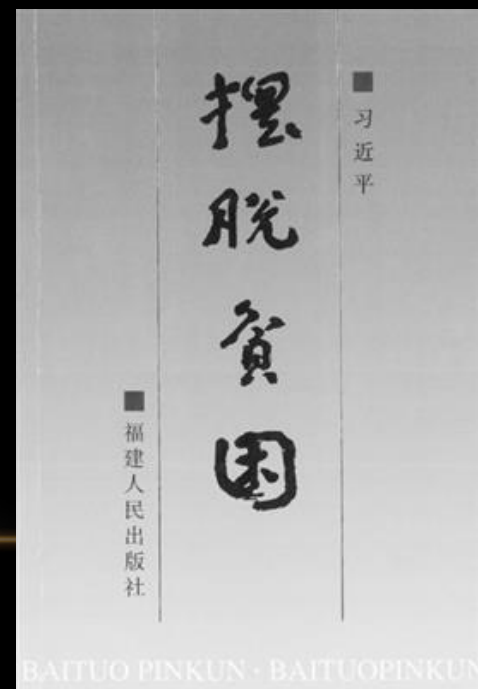 习近平
摆脱贫困
福建人民出版社
BAITUO PINKUN · BAITUOPINKUN